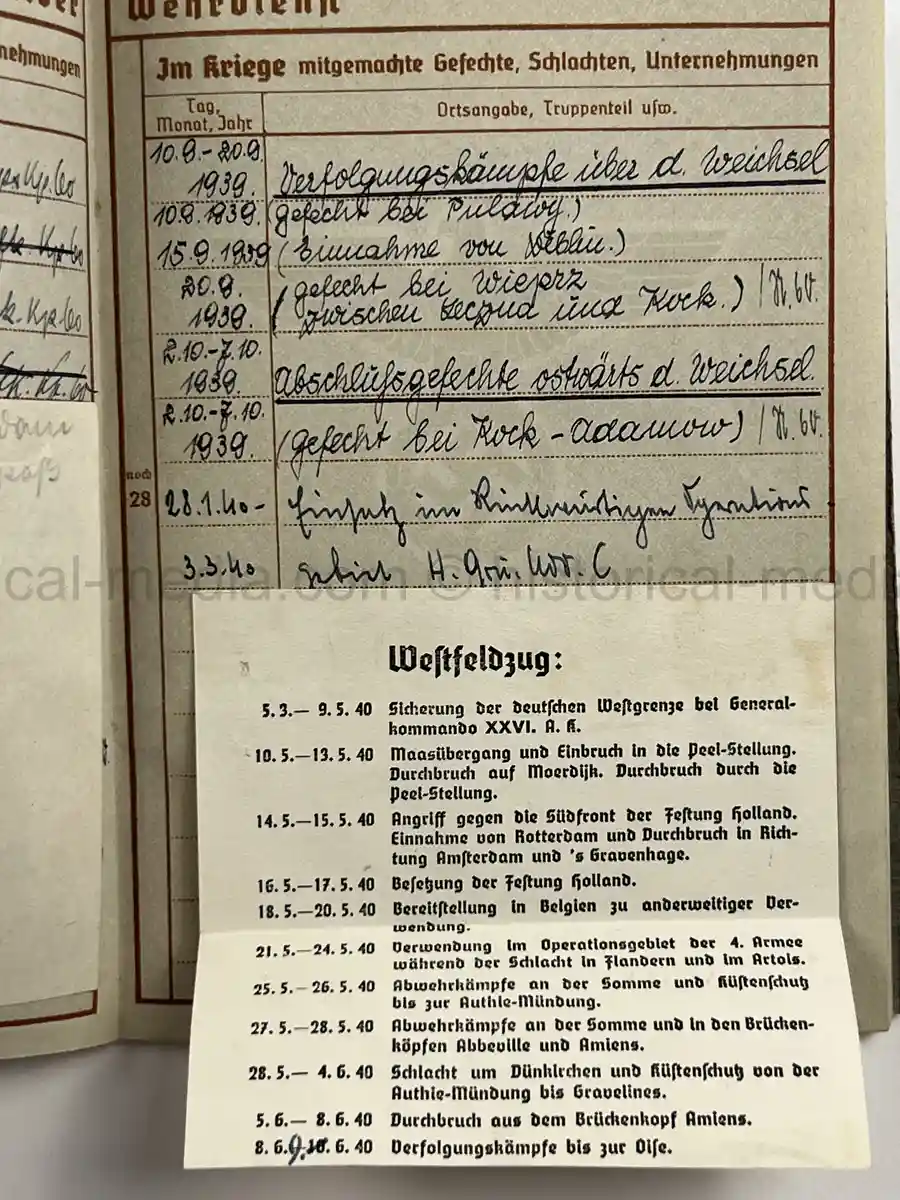 Wehrdienst
nehmungen
Im Kriege mitgemachte Gefechte, Schlachten, Unternehmungen
Tag, Monat, Jahr
Ortsangabe, Truppenteil usw.
10.9.-20.9. 1939. Verfolgungskämpfe über d. Weichsel
10.9.1939. (Gefecht bei Pulawy.)
15.9.1939 (Einnahme von Deblin.)
20.9. (Gefecht bei Wieprz
1939. zwischen und Kock.)
2.10.-7.10.
1939. Abschlußgefechte ostwärts d. Weichsel.
2.10.-7.10.
1939. (Gefecht bei Kock-Adamow)
noch
28
28.1.40- Einsatz im Rückwärtigen Operations
3.3.40 gebiet H. Gru. Kdo. C
historical-media.com © historical-media
Westfeldzug:
5. 3.— 9. 5. 40 Sicherung der deutschen Westgrenze bei General-
kommando XXVI. A. K.
10. 5.—13. 5. 40 Maasübergang und Einbruch in die Peel-Stellung.
Durchbruch auf Moerdijk. Durchbruch durch die
Peel-Stellung.
14. 5.—15. 5. 40 Angriff gegen die Südfront der Festung Holland.
Einnahme von Rotterdam und Durchbruch in Rich-
tung Amsterdam und 's Gravenhage.
16. 5.—17. 5. 40 Besetzung der Festung Holland.
18. 5.—20. 5. 40 Bereitstellung in Belgien zu anderweitiger Ver-
wendung.
21. 5.—24. 5. 40 Verwendung im Operationsgebiet der 4. Armee
während der Schlacht in Flandern und im Artois.
25. 5.— 26. 5. 40 Abwehrkämpfe an der Somme und Küstenschutz
bis zur Authie-Mündung.
27. 5.—28. 5. 40 Abwehrkämpfe an der Somme und in den Brücken-
köpfen Abbeville und Amiens.
28. 5.— 4. 6. 40 Schlacht um Dünkirchen und Küstenschutz von der
Authie-Mündung bis Gravelines.
5. 6.— 8. 6. 40 Durchbruch aus dem Brückenkopf Amiens.
8. 6. 9. 6. 40 Verfolgungskämpfe bis zur Oise.